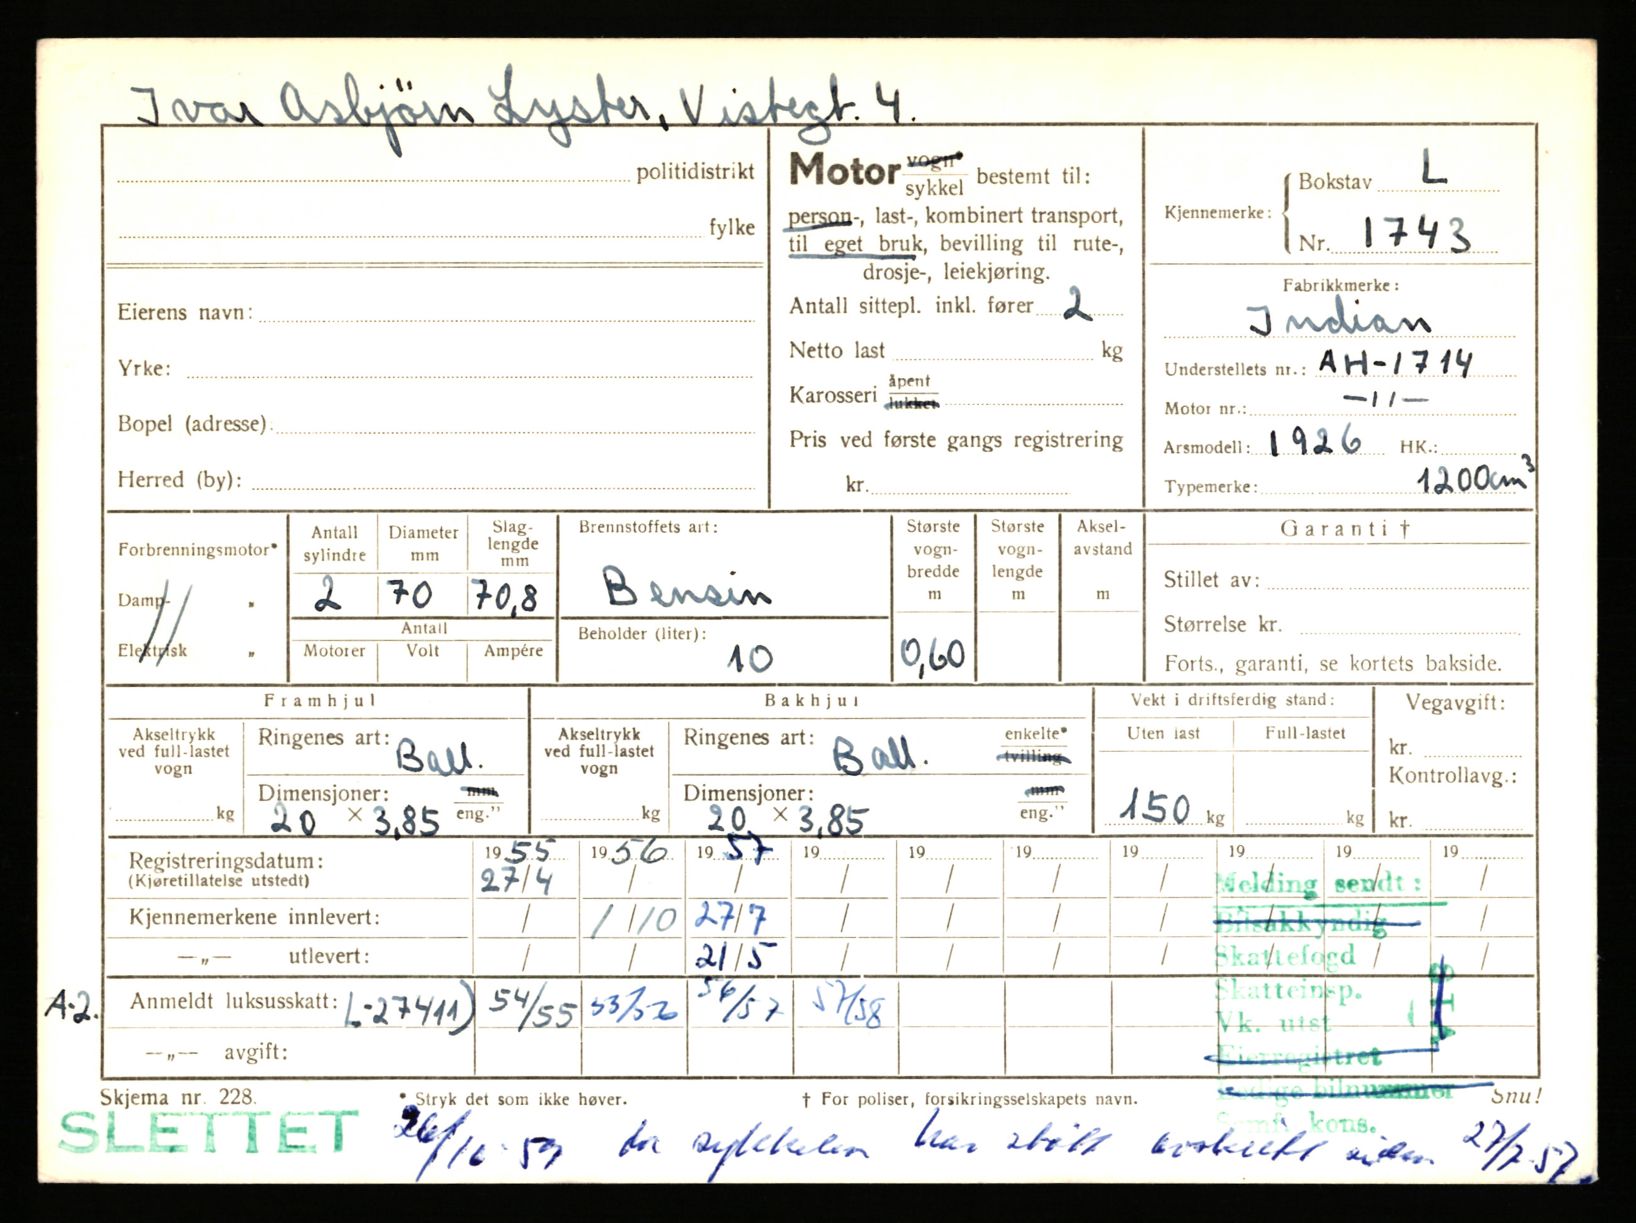 Ivar Asbjörn Lyster, Vistegt. 4.
politidistrikt
fylke
Eierens navn:
Yrke:
Bopel (adresse):
Herred (by):
Motor vogn*
sykkel bestemt til:
person-, last-, kombinert transport,
til eget bruk, bevilling til rute-,
drosje-, leiekjøring.
Antall sittepl. inkl. fører 2
Netto last kg
Karosseri åpent
lukket
Pris ved første gangs registrering
kr.
Kjennemerke: Bokstav L
Nr. 1743
Fabrikkmerke:
Indian
Understellets nr.: AH-1714
Motor nr.: —11—
Årsmodell: 1926 HK.:
Typemerke: 1200cm³
Forbrenningsmotor*
Damp- "
Elektrisk "
Antall sylindre Diameter mm Slaglengde mm
2 70 70,8
Antall
Motorer Volt Ampére
Brennstoffets art:
Bensin
Beholder (liter):
10
Største vogn-bredde m
0,60
Største vogn-lengde m
Aksel-avstand m
Garanti †
Stillet av:
Størrelse kr.
Forts., garanti, se kortets bakside.
Framhjul
Akseltrykk ved full-lastet vogn
kg
Ringenes art: Ball.
Dimensjoner: mm
20 × 3,85 eng."
Bakhjul
Akseltrykk ved full-lastet vogn
kg
Ringenes art: Ball. enkelte*
tvilling
Dimensjoner: mm
20 × 3,85 eng."
Vekt i driftsferdig stand:
Uten last Full-lastet
150 kg kg
Vegavgift:
kr.
Kontrollavg.:
kr.
Registreringsdatum: 1955 1956 1957 19 19 19 19 19 19 19
(Kjøretillatelse utstedt) 27/4 / / / / / / / / /
Kjennemerkene innlevert: / 1/10 27/7 / / / / / / /
—„— utlevert: / / 21/5 / / / / / / /
A-2. Anmeldt luksusskatt: L-27411) 54/55 53/56 56/57 57/58
—„— avgift:
Melding sendt:
Bilsakkyndig
Skattefogd
Skatteinsp.
Vk. utst
Eierregistret
Ledige bilnummer
kons.
Skjema nr. 228.
* Stryk det som ikke høver.
† For poliser, forsikringsselskapets navn.
Snu!
SLETTET 26/10-59 da sykkelen har stått avskiltt siden 27/7-57.